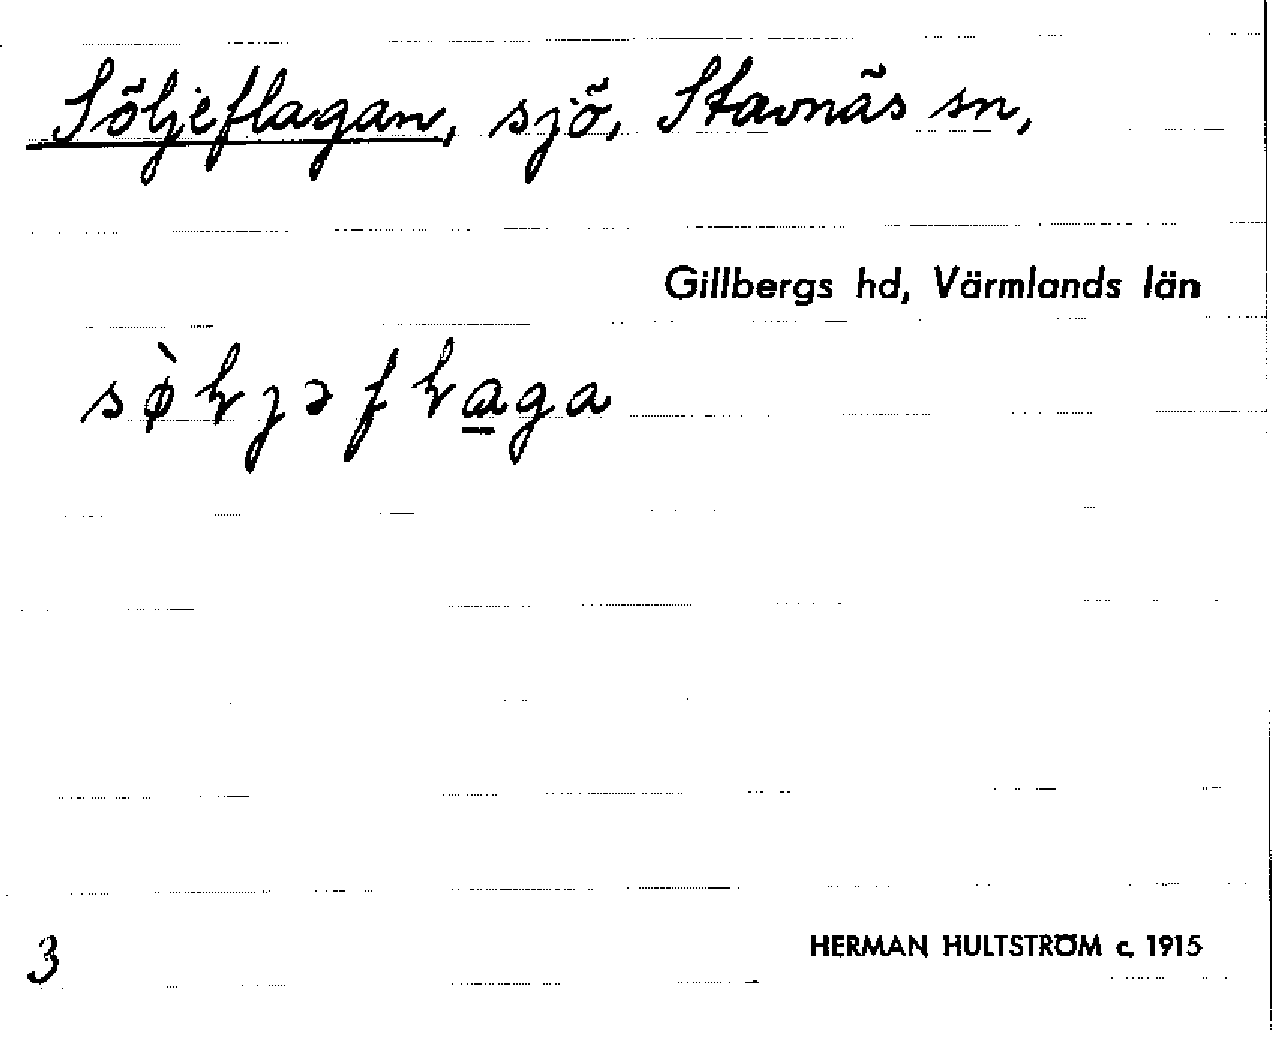 Söljeflagan, sjö, Stavnäs sn,
Gillbergs hd, Värmlands län
sø̀ɽjəfɽa̲ga
3
HERMAN HULTSTRÖM c. 1915